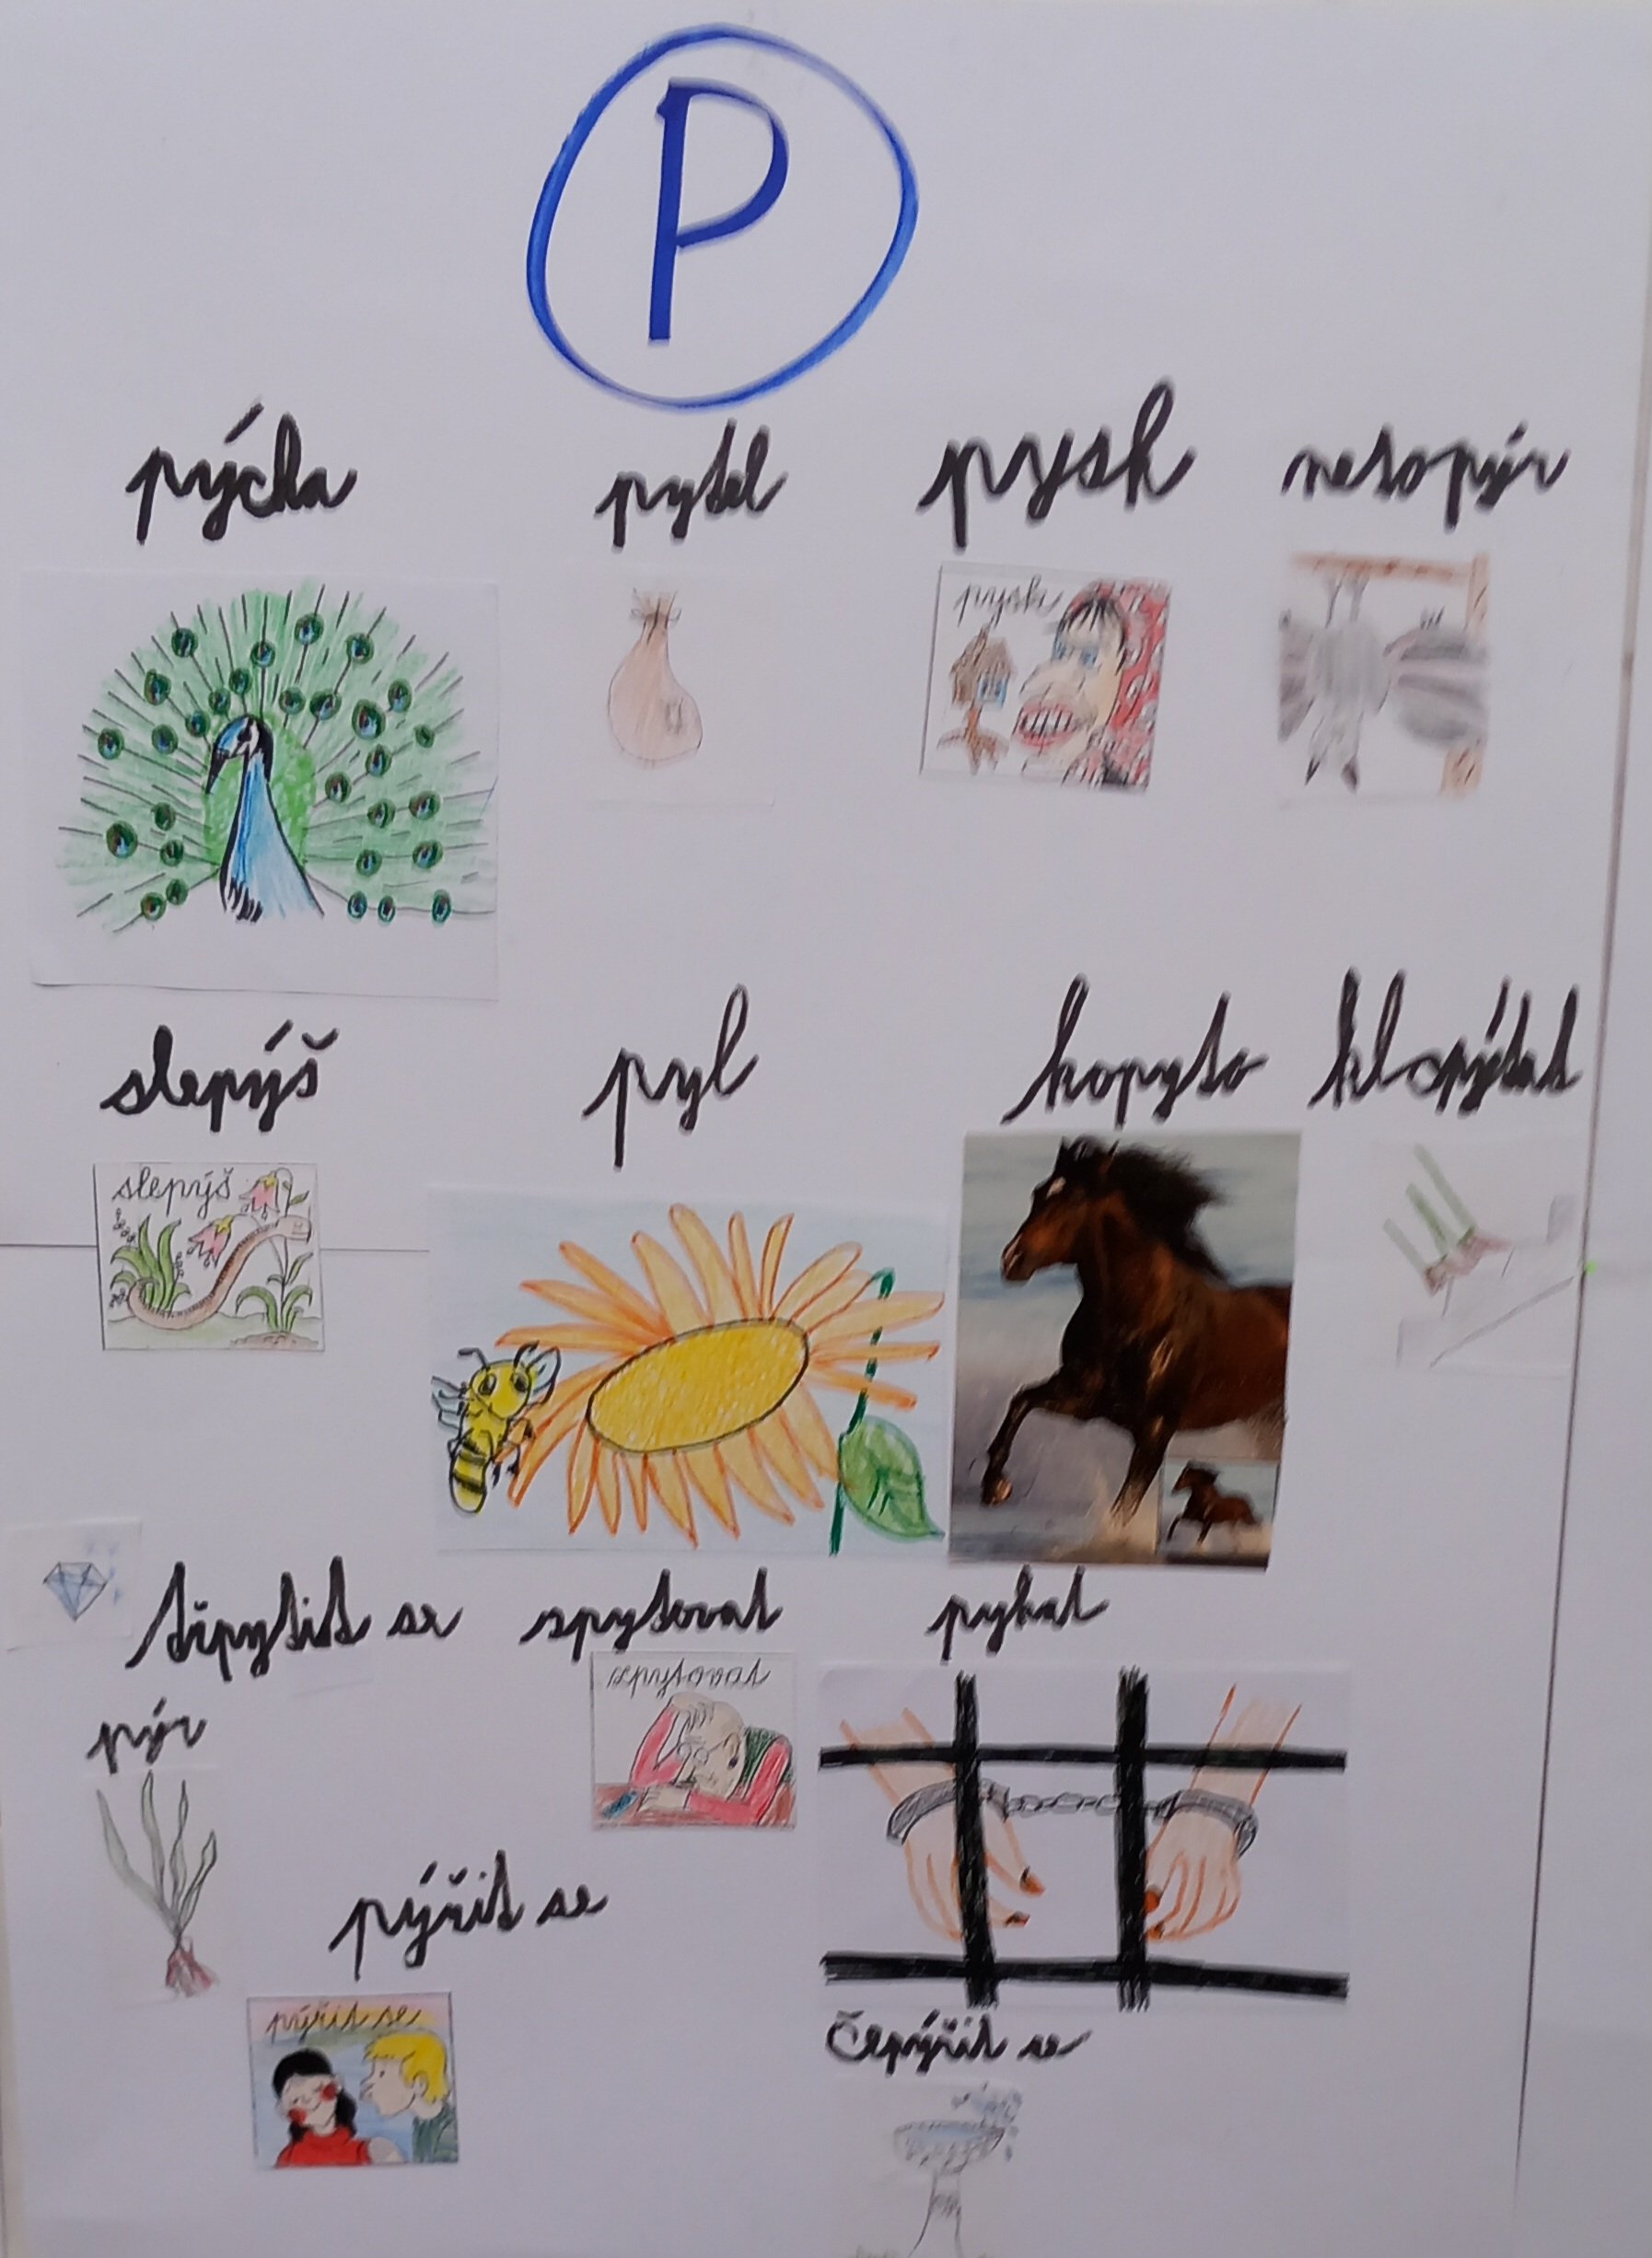 P
pýcha pytel pysk netopýr
pysk
slepýš pyl kopyto klopýtat
slepýš
třpytit se zpytovat pykat
zpytovat
pýr
pýřit se
pýřit se
Čepýřit se